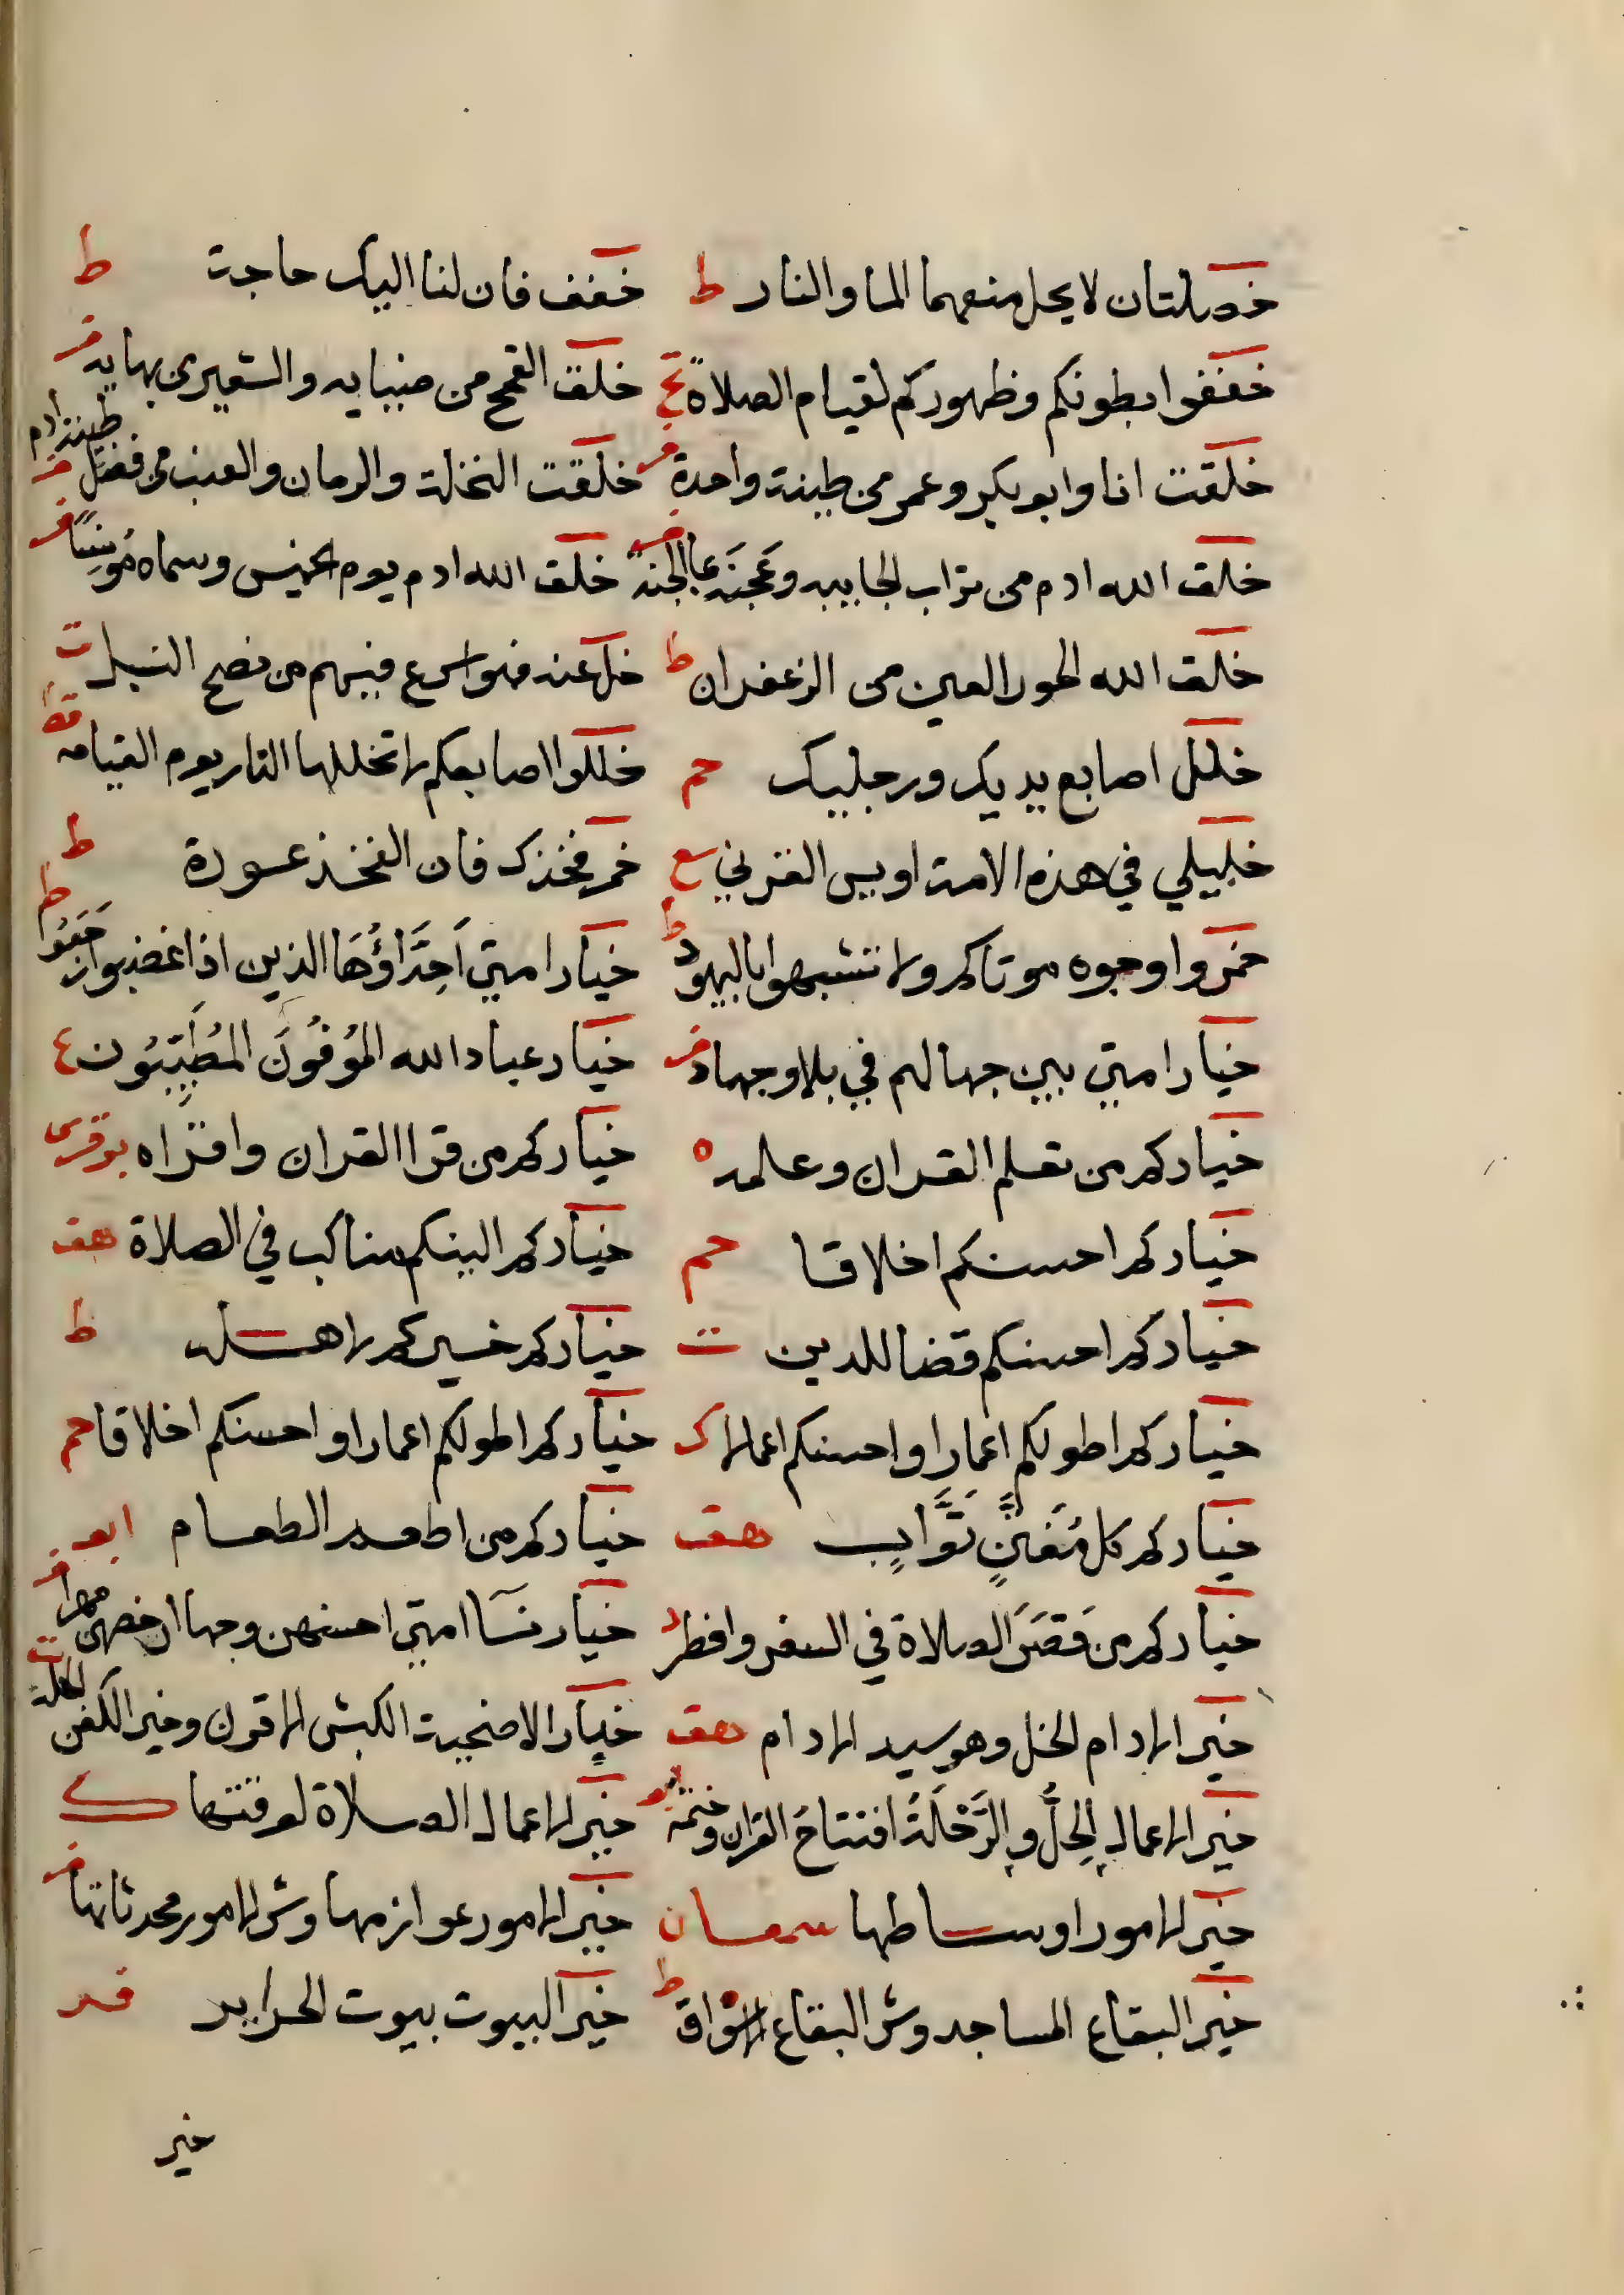 خصلتان لا يحل منعهما الما والنار ط خفف فان لنا اليك حاجة ط
خففوا بطونكم وظهوركم لقيام الصلاة خلق القمح من ضيايه والشعير من بهايه فر
خلقت انا وابو بكر وعمر من طينة واحدة فر خلقت النخلة والرمان والعنب من فضل طينة ادم فر
خلق الله ادم من تراب الجابيه وعجنه بما الجنة فر خلق الله ادم يوم الخميس وسماه فر
خلق الله الحور العين من الزعفران ط خل عنه فهو اسرع فيهم من نضح النبل ت
خلل اصابع يديك ورجليك حم خللوا اصابعكم لا تخللها النار يوم القيامه قط
خليلي في هذه الامة اويس القرني سع خمر فخذك فان الفخذ عورة ط
خمروا وجوه موتاكم ولا تشبهوا باليهود ط خيار امتي اَحِدَّاؤُهَا الذين اذا غضبوا رجعوا ط
خيار امتي بين جهالهم في بلا وجهاد فر خيار عباد الله المُوفُونَ المُطَيِّبُون ع
خياركم من تعلم القران وعلمه ه خياركم من قرا القران واقراه
خياركم احسنكم اخلاقا حم خياركم الينكم مناكب في الصلاة هق
خياركم احسنكم قضا للدين ت خياركم خيركم لاهله ط
خياركم اطولكم اعمارا واحسنكم اعمالا ك خياركم اطولكم اعمارا واحسنكم اخلاقا حم
خياركم كل مُفَتَّنٍ تَوَّابٍ هق خياركم من اطعم الطعام ابو
خياركم من قَصَرَ الصلاة في السفر وافطر خيار نسا امتي احسنهن وجها ارخصهن مهرا فر
خير الادام الخل وهو سيد الادام هق خيار الاضحية الكبش الاقرن وخير الكفن الحلة ت
خير الاعمال الحِلُّ والرَّحْلَةُ افتتاح القران وختمه خير الاعمال الصلاة لوقتها ك
خير الامور اوساطها سمعان خير الامور عوازمها وشر الامور محدثاتها فر
خير البقاع المساجد وشر البقاع الاسواق ط خير البيوت بيوت
خير